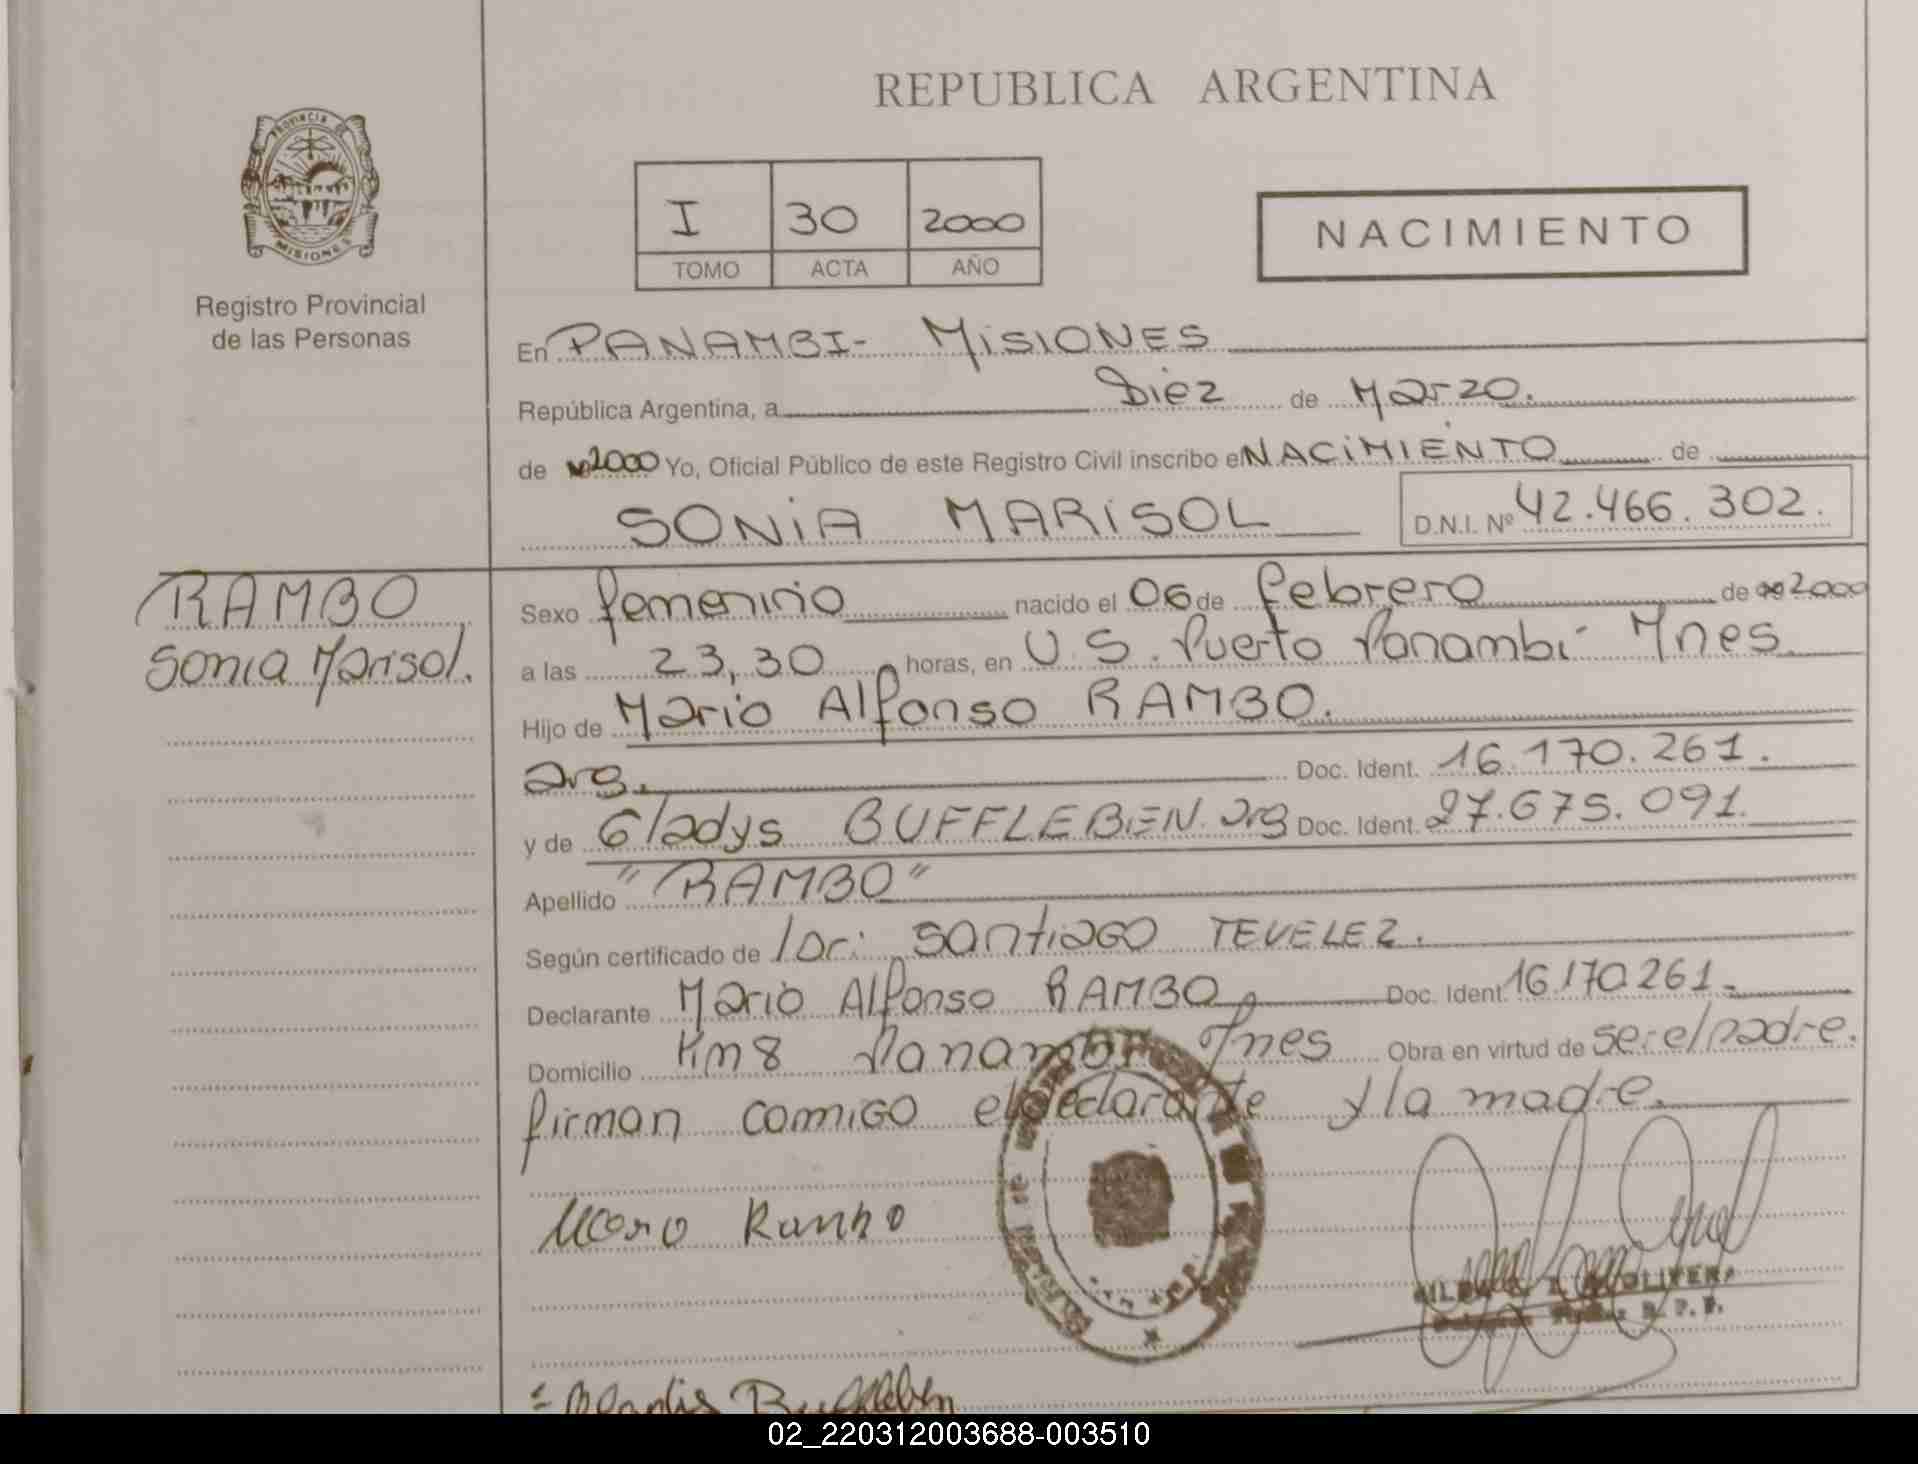 REPUBLICA ARGENTINA
PROVINCIA DE
MISIONES
Registro Provincial
de las Personas
I 30 2000
TOMO ACTA AÑO
NACIMIENTO
En PANAMBI- MISIONES
República Argentina, a Diez de Marzo.
de 2000 Yo, Oficial Público de este Registro Civil inscribo el NACIMIENTO de
SONIA MARISOL D.N.I. Nº 42.466.302.
RAMBO
Sonia Marisol.
Sexo femenino nacido el 06 de febrero de 2000
a las 23,30 horas, en U.S. Puerto Panambí Mnes.
Hijo de Mario Alfonso RAMBO.
arg. Doc. Ident. 16.170.261.
y de Gladys BUFFLEBEN. arg Doc. Ident. 27.675.091.
Apellido "RAMBO"
Según certificado de Santiago TEVELEZ.
Declarante Mario Alfonso RAMBO Doc. Ident. 16.170.261.
Domicilio Km 8 Panambí Mnes Obra en virtud de ser el padre.
firman comigo el declarante y la madre.
Mario Rambo
R. P. P.
Buffleben
02_220312003688-003510